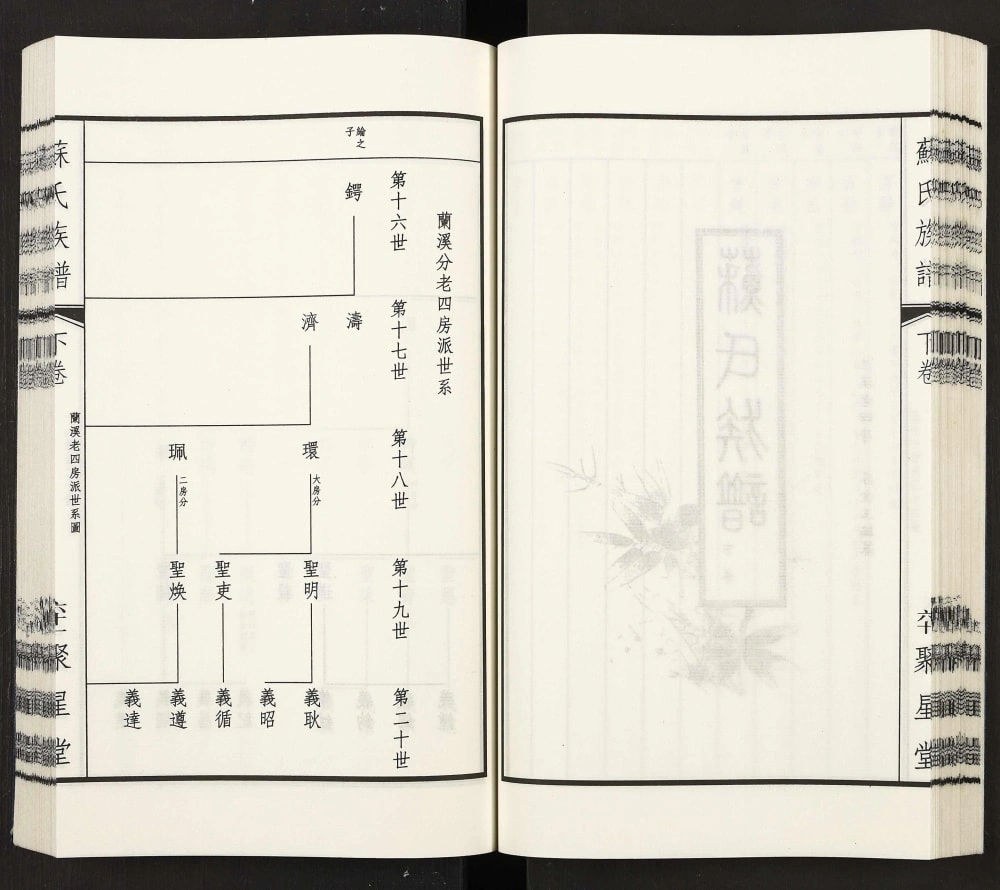 蘇氏族譜
下卷
聚星堂
蘭溪分老四房派世系
第十六世
第十七世
第十八世
第十九世
第二十世
綸之子
鍔
濤
濟
環
大房分
珮
二房分
聖明
聖吏
聖煥
義耿
義昭
義循
義遵
義達
蘇氏族譜
下卷
蘭溪老四房派世系圖
聚星堂